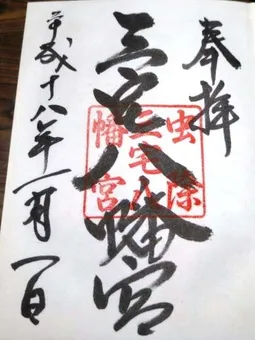 奉拝
三宅八幡宮
虫除
三宅八
幡宮
平成十八年一月一日